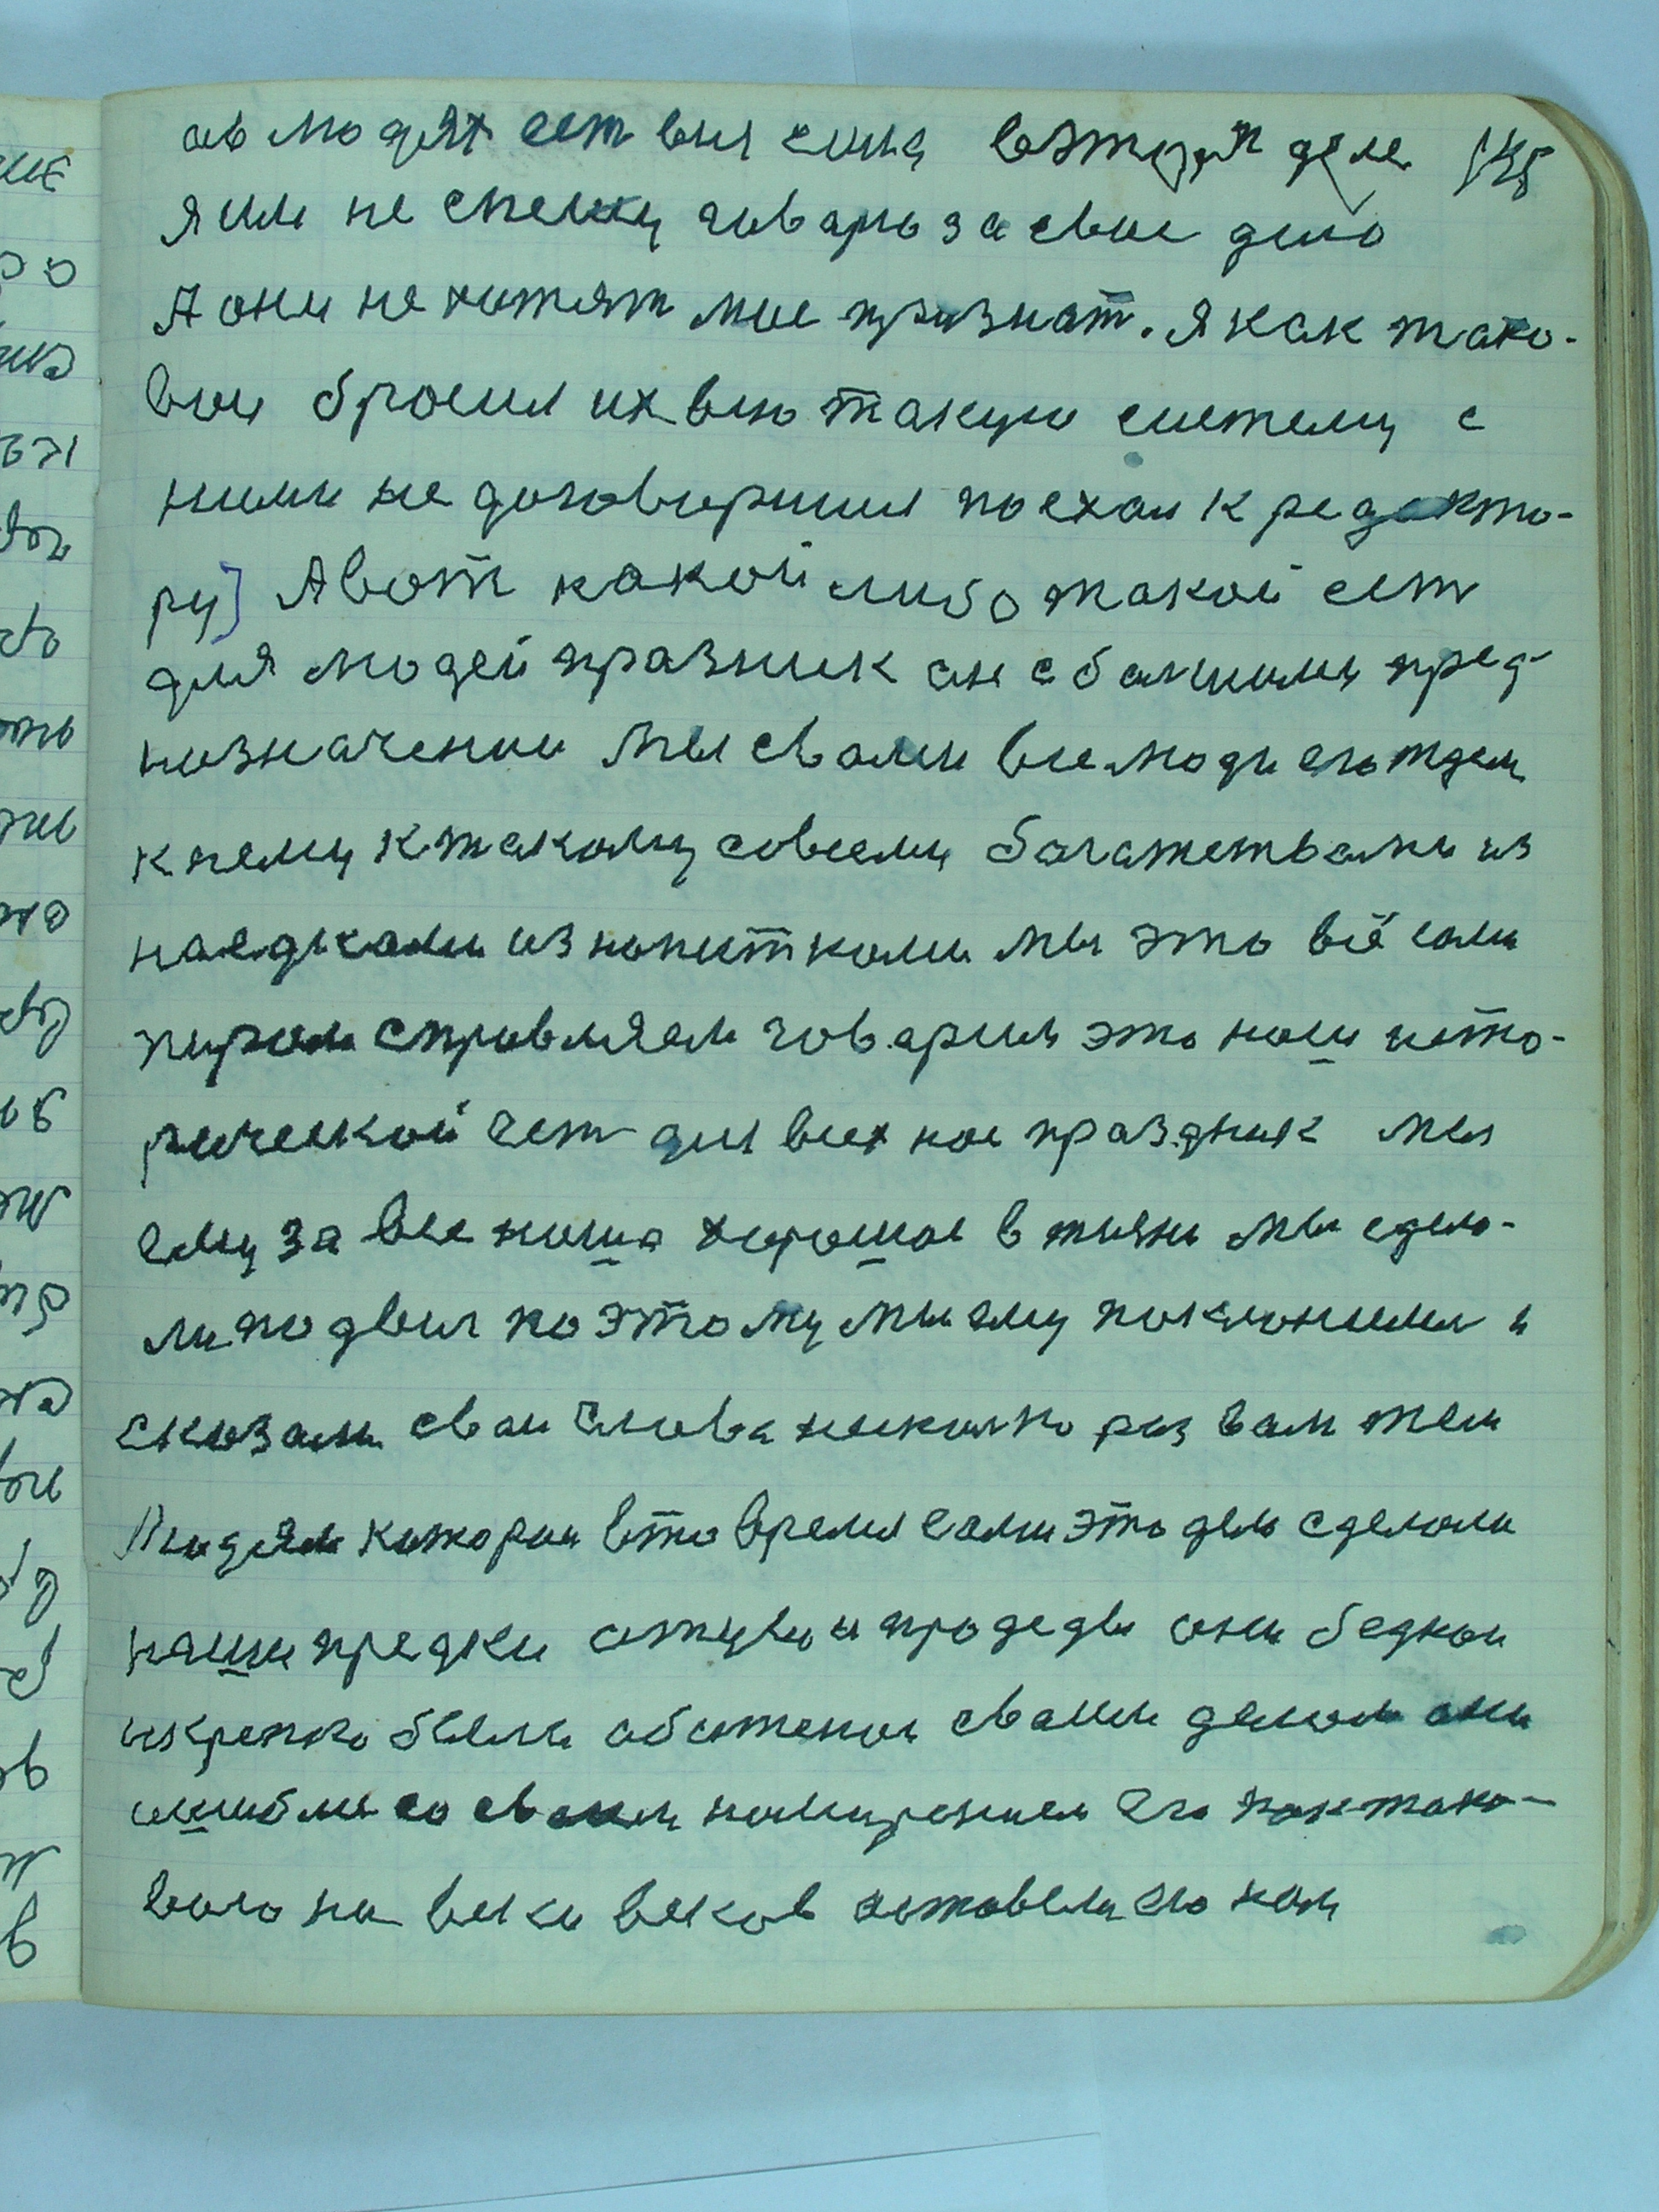 ав людях ест вся сила в этом деле
я им не спешу говарю за свое дело
А они не хотят мое признат. я как тако-
вои бросил их всю такую систему с
ними не договорился поехал к редакто-
ру] А вот какой либо такой ест
для людей празник он с балшим пред-
назначением Мы с вами все люди его ждем
к нему к такому со всеми багатствами из
наедками из напитками мы это всё сами
пиром справляем говарим это наш исто-
рической ест для всех нас праздник мы
ему за все наша хорошое в жизни мы сдела-
ли подвиг поэтому мы ему поклонимся и
сказали сваи слова несколко раз вам тем
Людям котории в то время сами это дело сделали
наши предки отцы и продеды они беднои
и крепко были обиженои сваим делом они
ошиблис со сваим намирением его как тако-
вого на веки веков оставили его нам